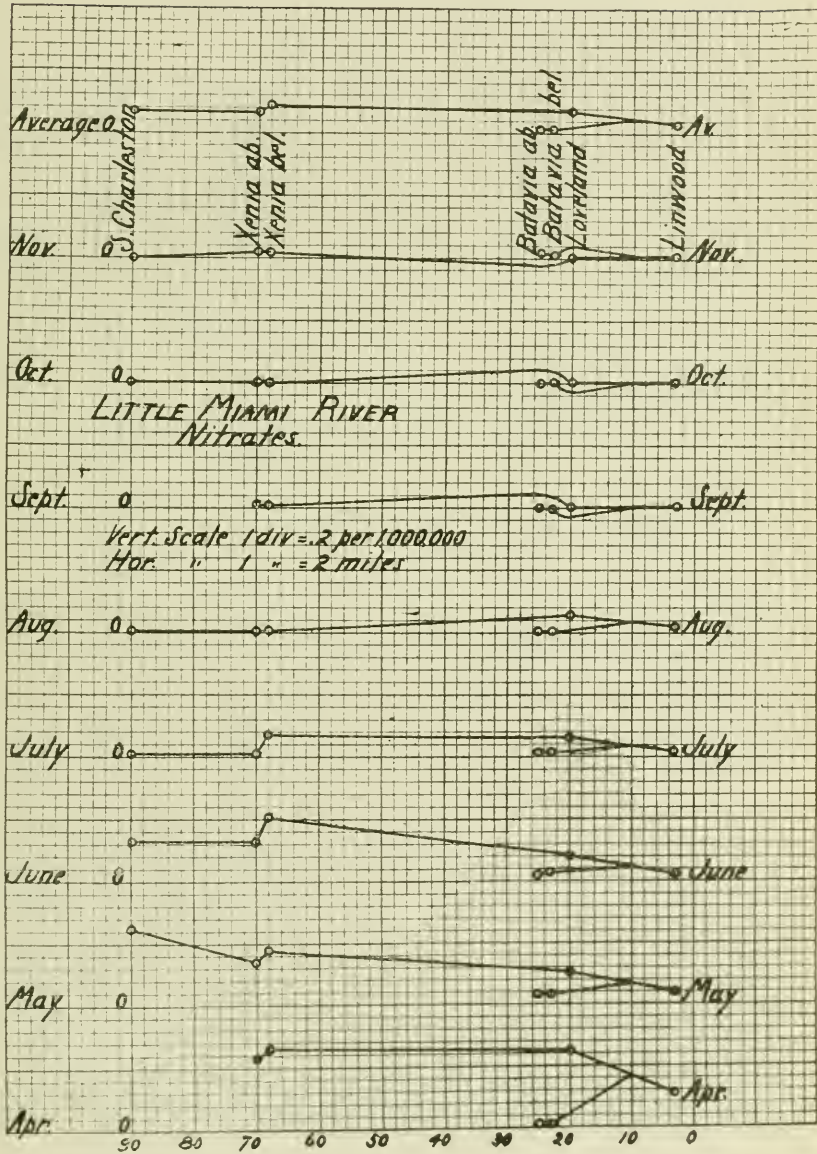 Average 0 Av.
S. Charleston
Xenia ab.
Xenia bel.
Batavia ab.
Batavia bel.
Loveland
Linwood
Nov. 0 Nov.
Oct. 0 Oct.
LITTLE MIAMI RIVER
Nitrates.
Sept. 0 Sept.
Vert. Scale 1 div = .2 per 1,000,000
Hor. " 1 " = 2 miles
Aug. 0 Aug.
July 0 July
June 0 June
May 0 May
Apr. 0 Apr.
90 80 70 60 50 40 30 20 10 0